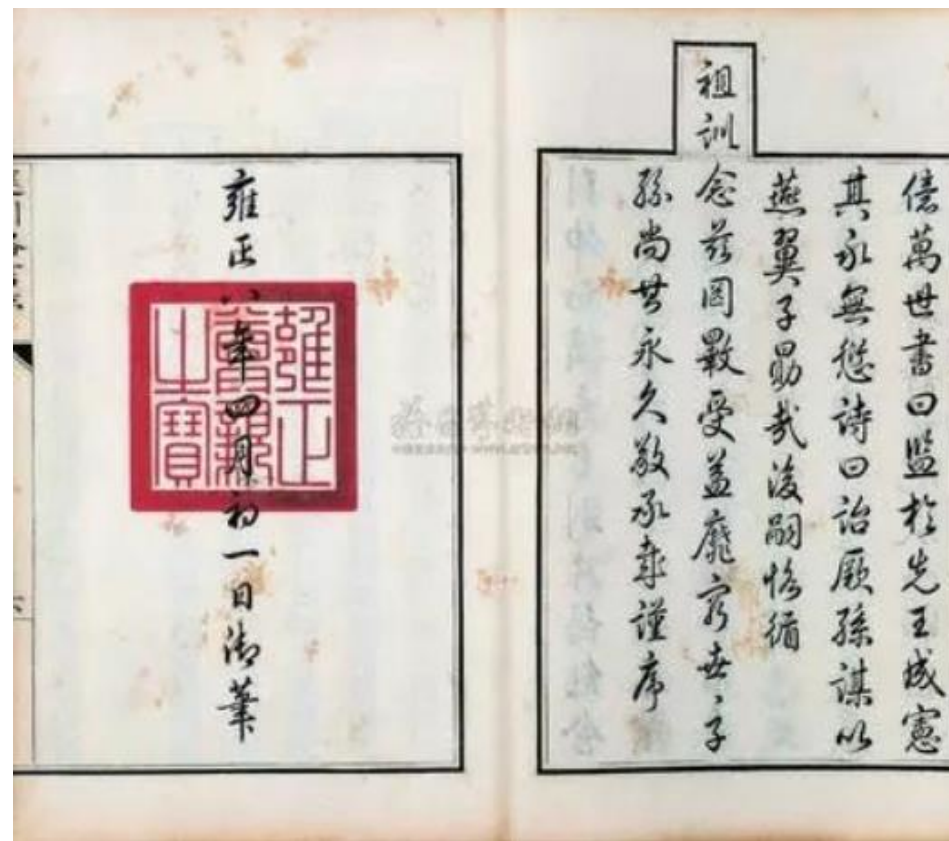 億萬世書曰監於先王成憲
其永無愆詩曰詒厥孫謀以
燕翼子勖哉後嗣恪循
祖訓念茲罔斁受益靡窮世〻子
孫尚其永久敬承哉謹序
雍正八年四月初一日御筆
雍正
尊親
之寶